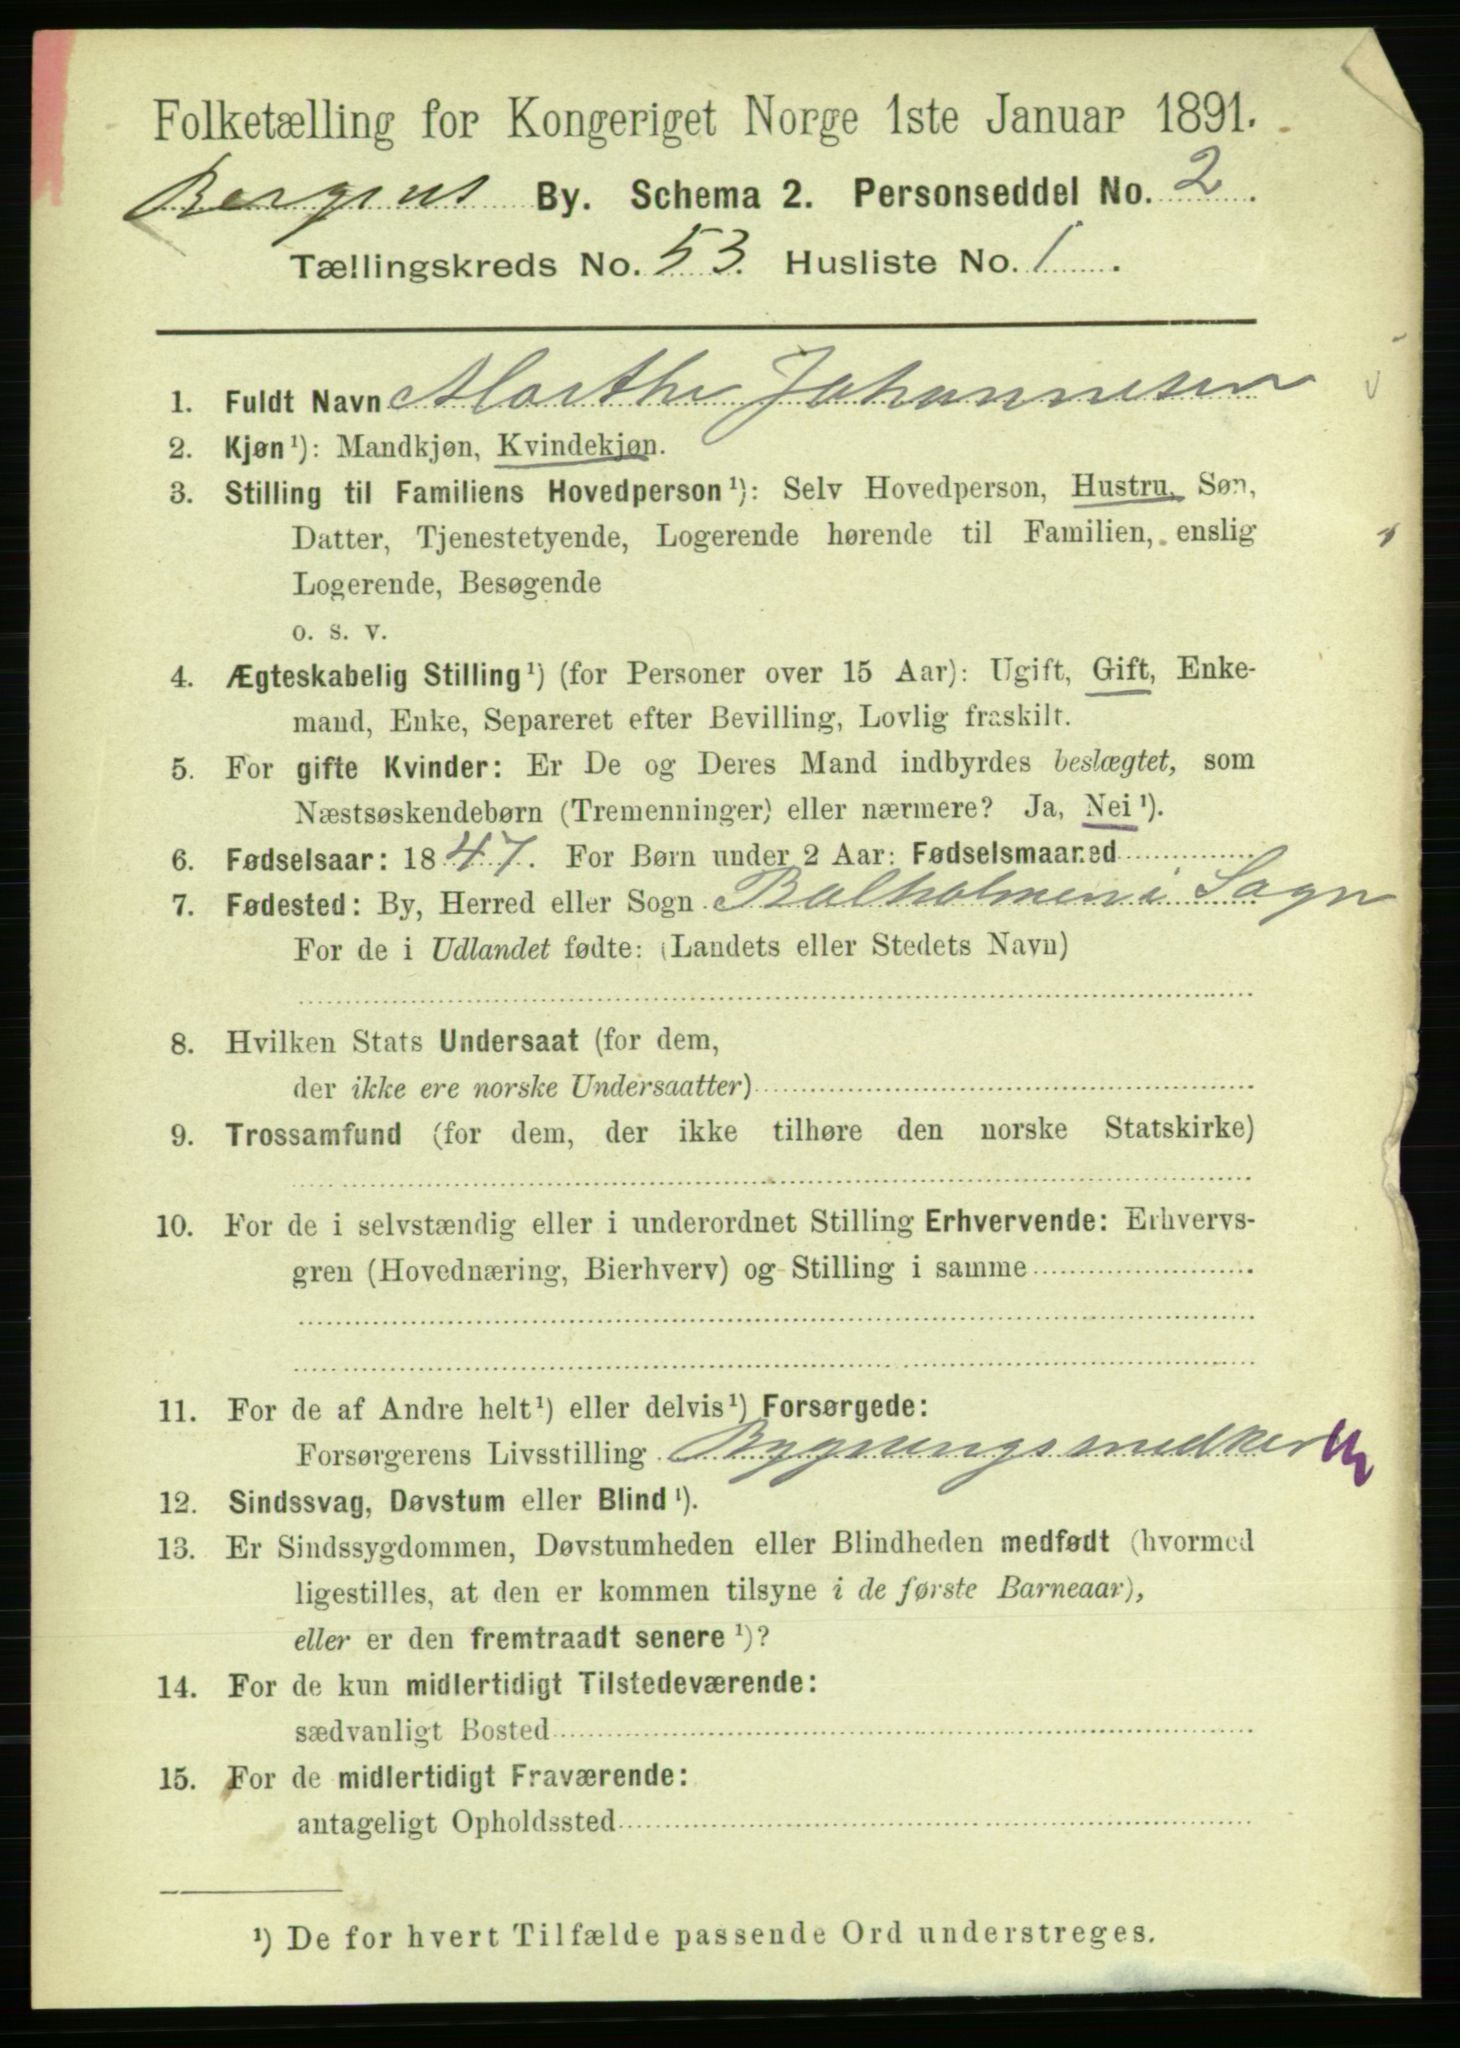 Folketælling for Kongeriget Norge 1ste Januar 1891.
Bergens By. Schema 2. Personseddel No. 2.
Tællingskreds No. 53. Husliste No. 1.
1. Fuldt Navn Marthe Johannesen
2. Kjøn¹): Mandkjøn, Kvindekjøn.
3. Stilling til Familiens Hovedperson¹): Selv Hovedperson, Hustru, Søn,
Datter, Tjenestetyende, Logerende hørende til Familien, enslig
Logerende, Besøgende
o. s. v.
4. Ægteskabelig Stilling¹) (for Personer over 15 Aar): Ugift, Gift, Enke-
mand, Enke, Separeret efter Bevilling, Lovlig fraskilt.
5. For gifte Kvinder: Er De og Deres Mand indbyrdes beslægtet, som
Næstsøskendebørn (Tremenninger) eller nærmere? Ja, Nei¹).
6. Fødselsaar: 1847. For Børn under 2 Aar: Fødselsmaaned
7. Fødested: By, Herred eller Sogn Balholmen i Sogn
For de i Udlandet fødte: (Landets eller Stedets Navn)
8. Hvilken Stats Undersaat (for dem,
der ikke ere norske Undersaatter)
9. Trossamfund (for dem, der ikke tilhøre den norske Statskirke)
10. For de i selvstændig eller i underordnet Stilling Erhvervende: Erhvervs-
gren (Hovednæring, Bierhverv) og Stilling i samme
11. For de af Andre helt¹) eller delvis¹) Forsørgede:
Forsørgerens Livsstilling Bygningssnedker
12. Sindssvag, Døvstum eller Blind¹).
13. Er Sindssygdommen, Døvstumheden eller Blindheden medfødt (hvormed
ligestilles, at den er kommen tilsyne i de første Barneaar),
eller er den fremtraadt senere¹)?
14. For de kun midlertidigt Tilstedeværende:
sædvanligt Bosted
15. For de midlertidigt Fraværende:
antageligt Opholdssted
¹) De for hvert Tilfælde passende Ord understreges.